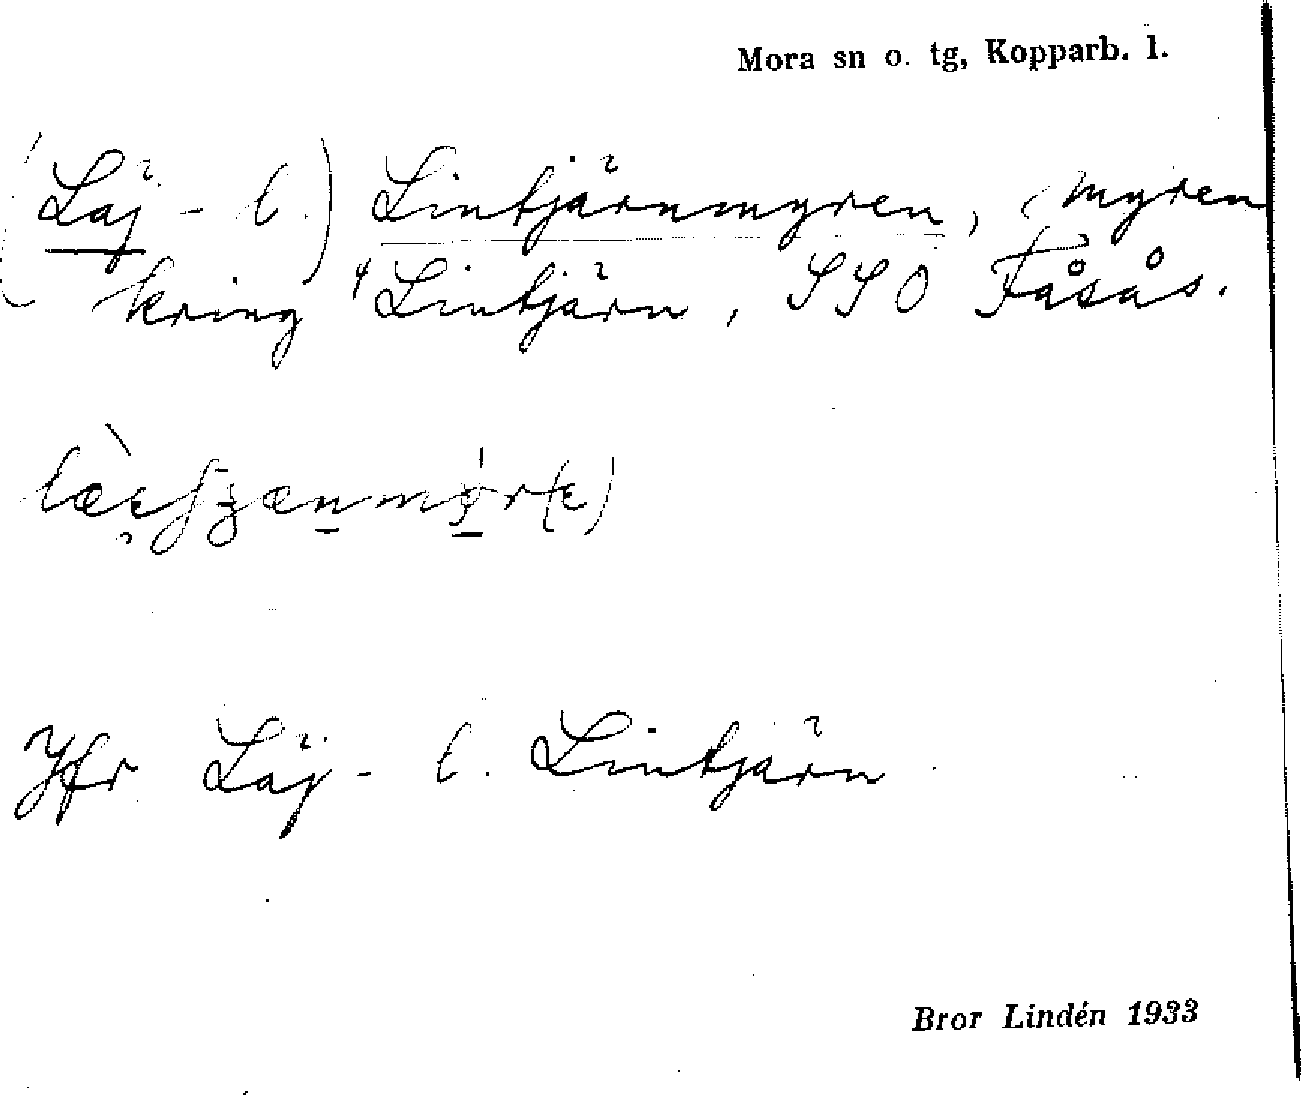 Mora sn o. tg, Kopparb. l.
(Läj- l.) Lintjärnmyren, myren
kring Lintjärn, SSO Fåsås.
Jfr Läj- l. Lintjärn
Bror Lindén 1933